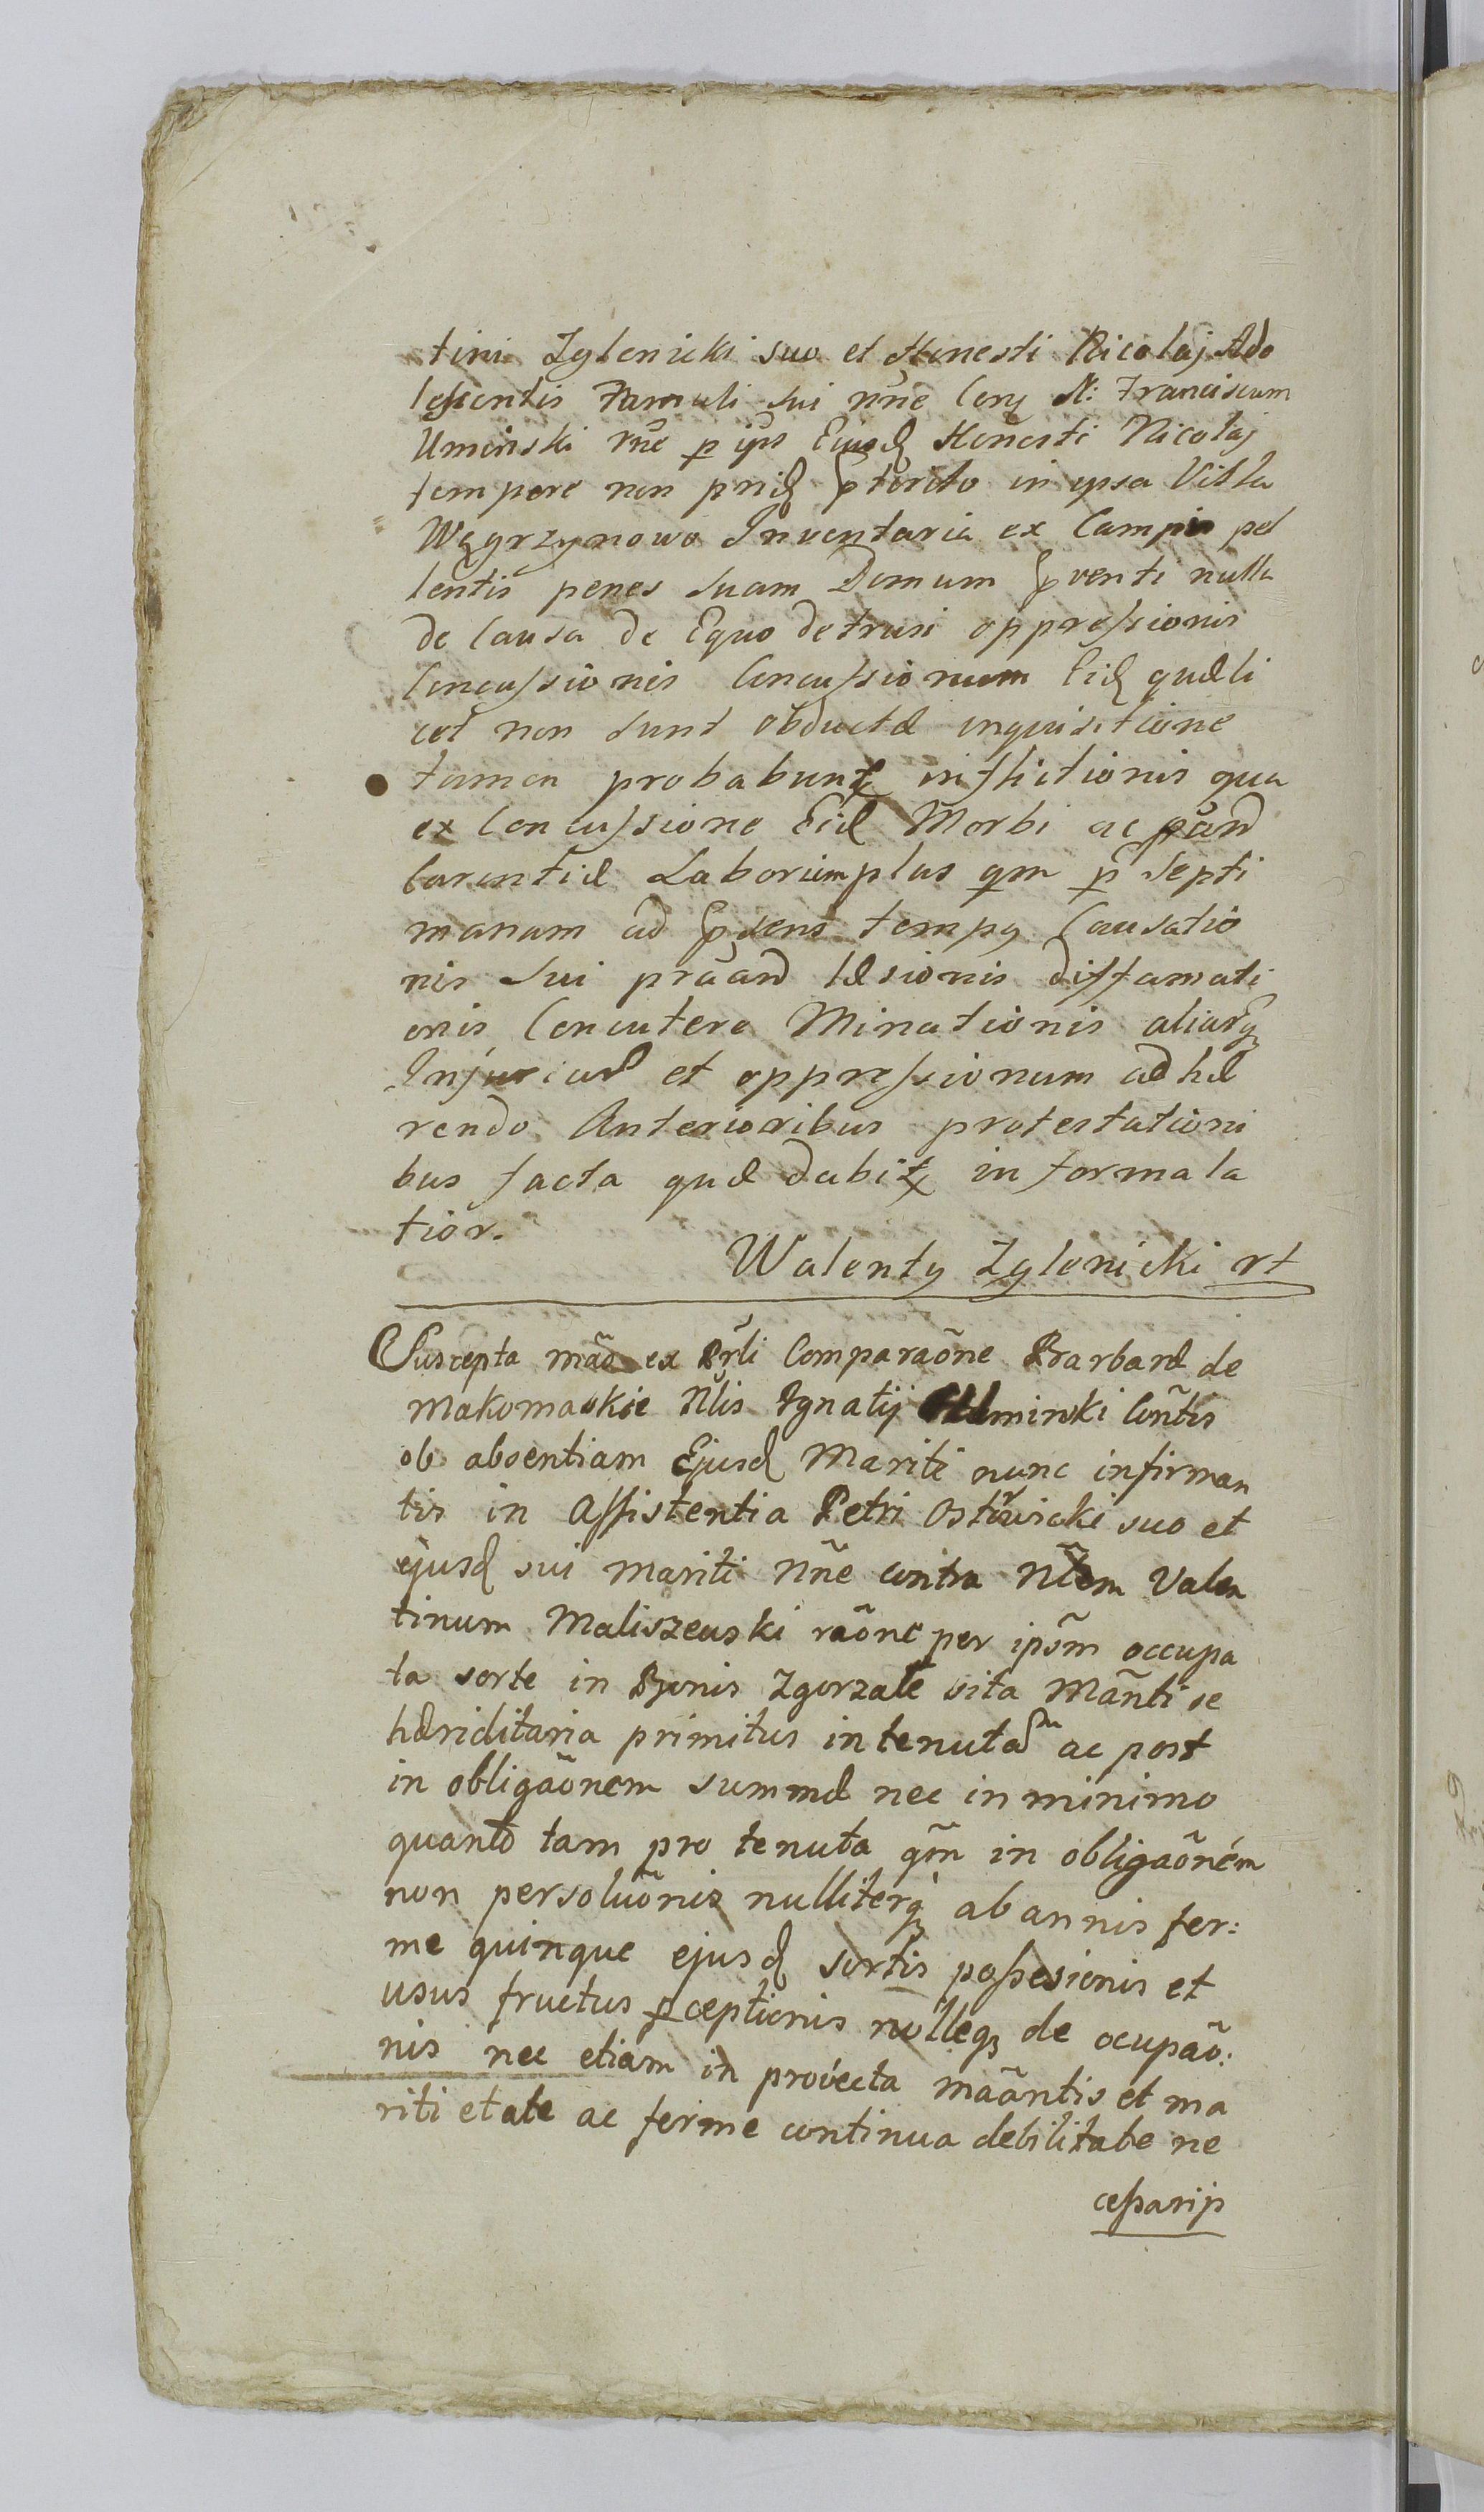 tini Zglenicki suo et Honesti Nicolaj Ado
lescentis Famuli sui nne Con̄ N: Franciscum
Uminski rne p ip̄s Eiusd Honesti Nicolaj
tempore non prid pterito in ipsa Villa
Węgrzynowo Inventaria ex Campis pel
lentis penes suam Domum pventi nulla
de Causa de Equo detrusi oppressionis
Concussionis Concussionum Eid quæ li
cet non sunt obductæ inquisitione
tamen probabunt inflictionis qua
ex Concussione Eid Morbi ac
Carentiæ Laborum plus qm p Septi
manam ad psens temp9 Causatio
nis sui læsionis diffamati
onis Concutere Minationis aliarq
Injuriar et oppressionum adhæ
rendo Anterioribus protestationi
bus facta quæ dabit in forma la
tior.
Walenty Zglenicki rt
Suscepta mão ex Prli Comparaõne Barbaræ de
Makomaskie Nlis Ignatij Uminski Cõntis
ob absentiam Ejusd Mariti nunc infirman
tis in Assistentia Petri suo et
ejusd sui mariti Nñe contra Nlem Valen
tinum Maliszewski raõne per ipsm̃ occupa
ta sorte in Bonis Zgorzałe sita Mãnti se
hæriditaria primitus in tenutam ac post
in obligaõnem summæ nec in minimo
quanto tam pro tenuta qm̃ in obligaõnem
non persoluõnis nulliterq ab annis fer:
me quinque ejusd sortis possesionis et
usus fructus pceptionis nulleq de ocupaõ:
nis nec etiam in provecta mãantis et ma
riti etate ac ferme continua debilitate ne
cessarijs